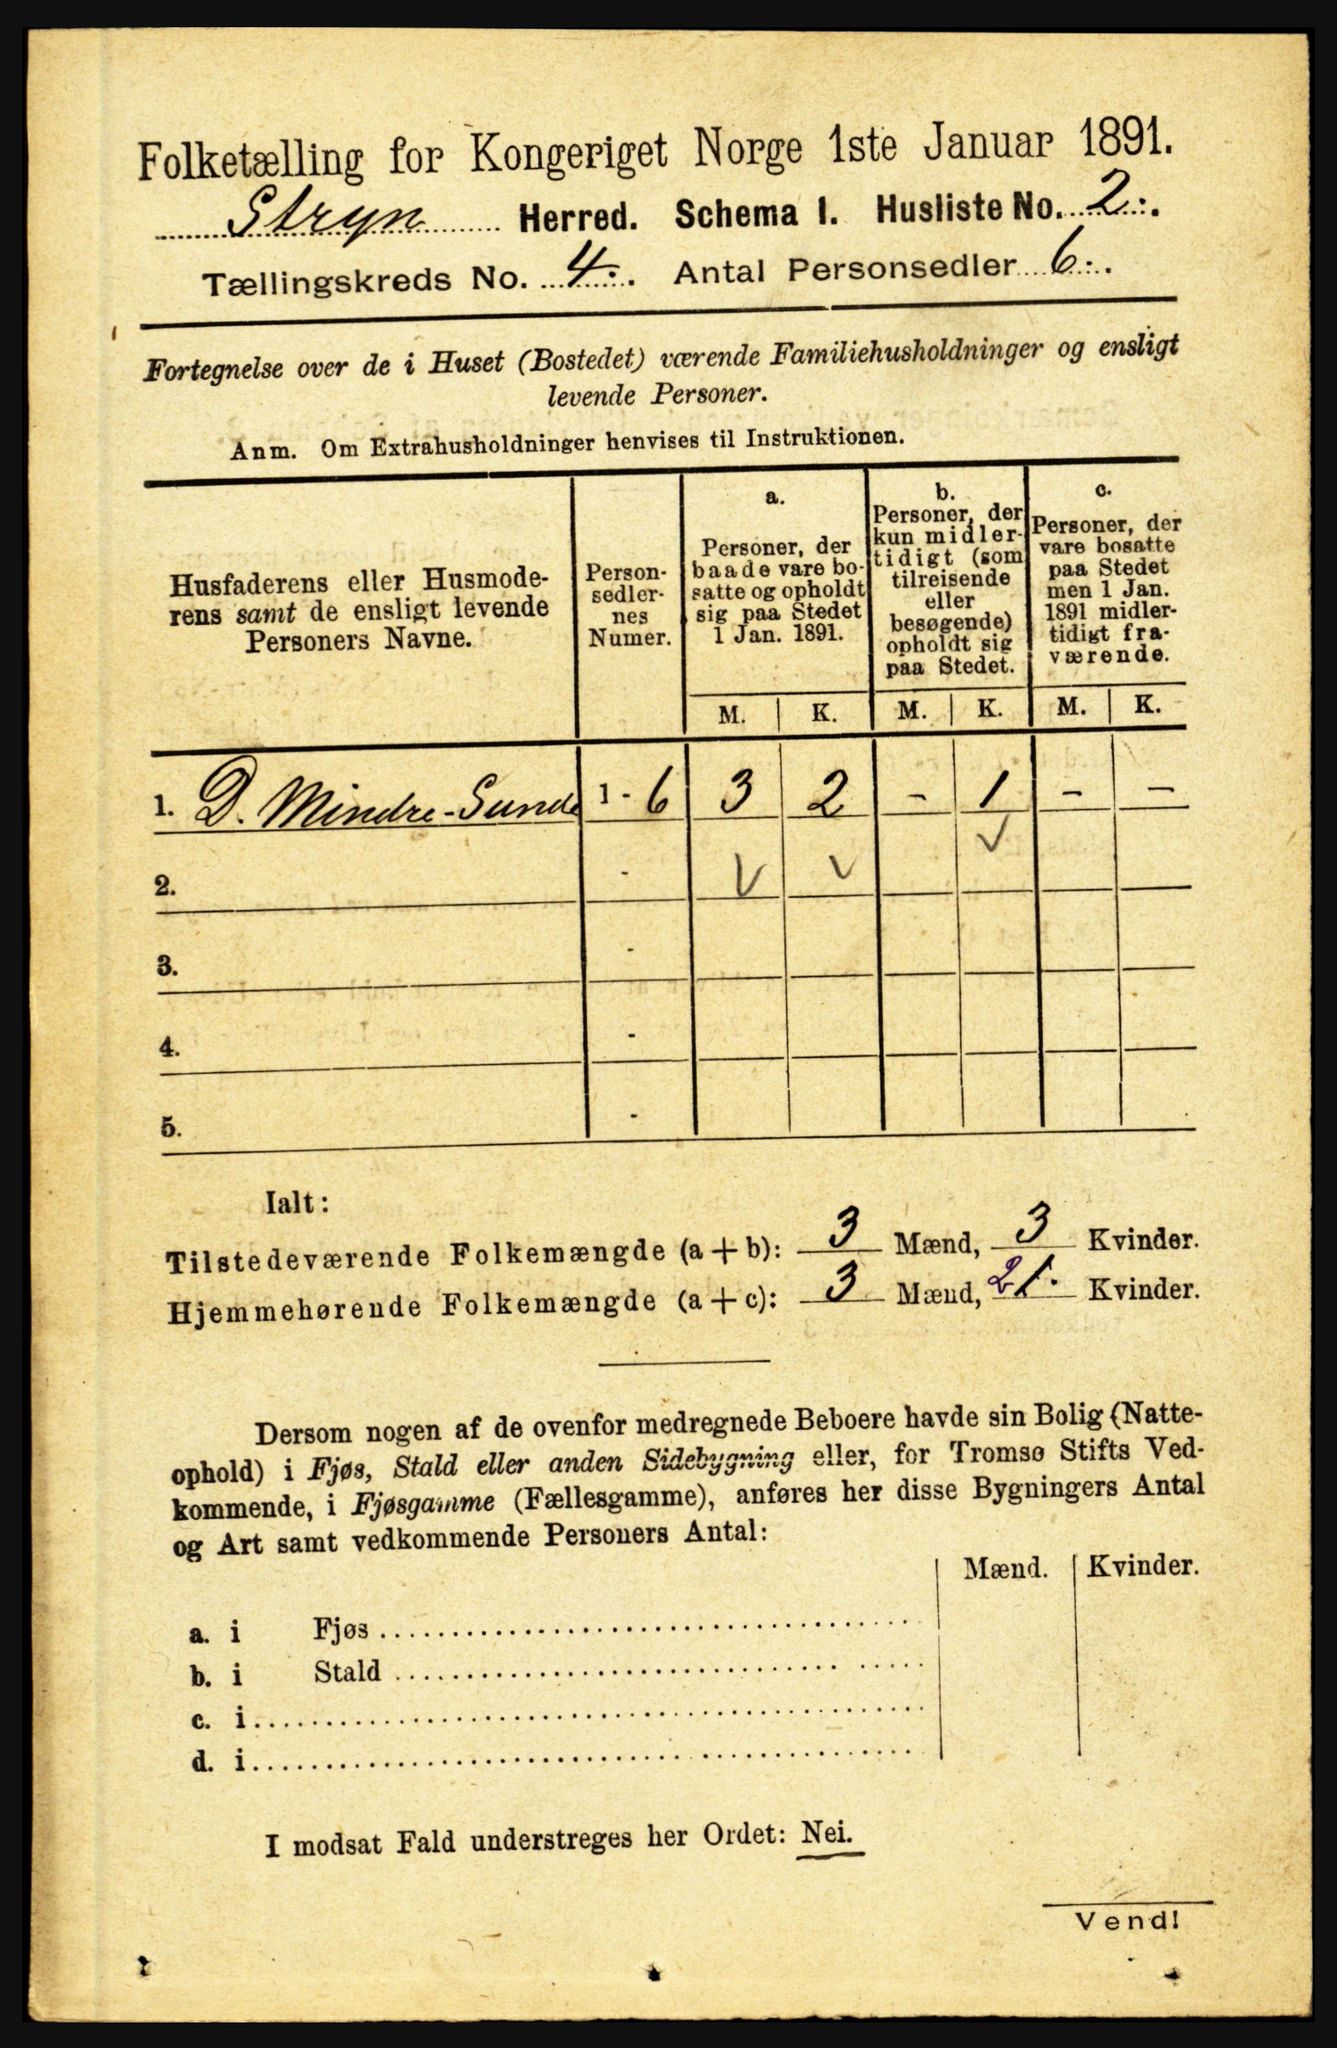 Folketælling for Kongeriget Norge 1ste Januar 1891.
Stryn Herred. Schema 1. Husliste No. 2.
Tællingskreds No. 4. Antal Personsedler 6.
Fortegnelse over de i Huset (Bostedet) værende Familiehusholdninger og ensligt
levende Personer.
Anm. Om Extrahusholdninger henvises til Instruktionen.
Husfaderens eller Husmode-
rens samt de ensligt levende
Personers Navne.
Person-
sedler-
nes
Numer.
a.
Personer, der
baade vare bo-
satte og opholdt
sig paa Stedet
1 Jan. 1891.
b.
Personer, der
kun midler-
tidigt (som
tilreisende
eller
besøgende)
opholdt sig
paa Stedet.
c.
Personer, der
vare bosatte
paa Stedet
men 1 Jan.
1891 midler-
tidigt fra-
værende.
M. K. M. K. M. K.
1. D. Mindre-Sunde 1 - 6 3 2 - 1 - -
2. -
3. -
4. -
5. -
Ialt:
Tilstedeværende Folkemængde (a + b): 3 Mænd, 3 Kvinder.
Hjemmehørende Folkemængde (a + c): 3 Mænd, 2 Kvinder.
Dersom nogen af de ovenfor medregnede Beboere havde sin Bolig (Natte-
ophold) i Fjøs, Stald eller anden Sidebygning eller, for Tromsø Stifts Ved-
kommende, i Fjøsgamme (Fællesgamme), anføres her disse Bygningers Antal
og Art samt vedkommende Personers Antal:
Mænd. Kvinder.
a. i Fjøs
b. i Stald
c. i
d. i
I modsat Fald understreges her Ordet: Nei.
Vend!